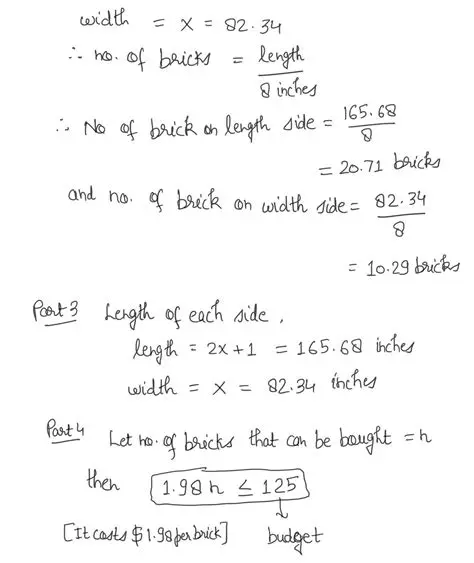 width = x = 82.34
∴ no. of bricks = length / 8 inches
∴ No of brick on length side = 165.68 / 8
= 20.71 bricks
and no. of brick on width side = 82.34 / 8
= 10.29 bricks
Part 3 Length of each side,
length = 2x+1 = 165.68 inches
width = x = 82.34 inches
Part 4 Let no. of bricks that can be bought = n
then 1.98 n ≤ 125
[It costs $1.98 per brick] budget